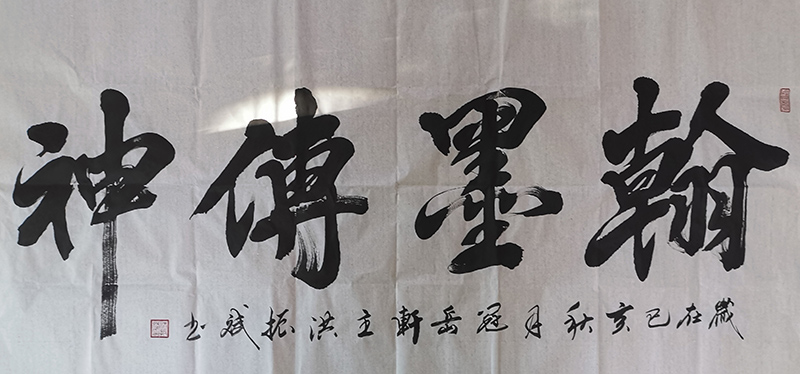 翰墨傳神
歲在己亥秋月冠岳軒主洪振斌书